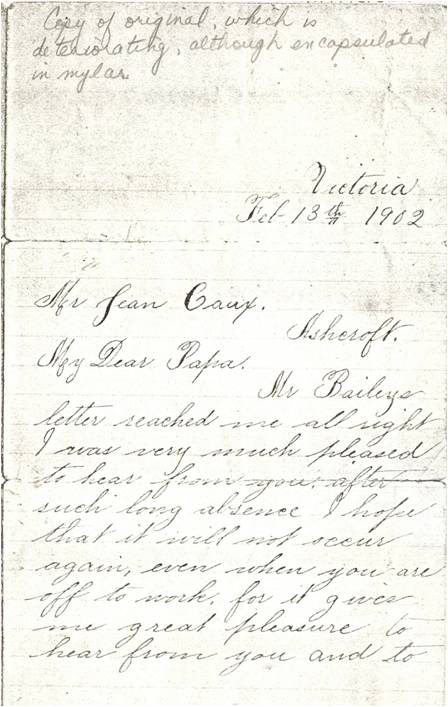 Copy of original, which is
deteriorating, although encapsulated
in mylar
Victoria
Feb 13th 1902
Mr Jean Caux.
Ashcroft.
My Dear Papa.
Mr Baileys
letter reached me all right
I was very much pleased
to hear from you: after
such long absence I hope
that it will not occur
again, even when you are
off to work. for it gives
me great pleasure to
hear from you and to